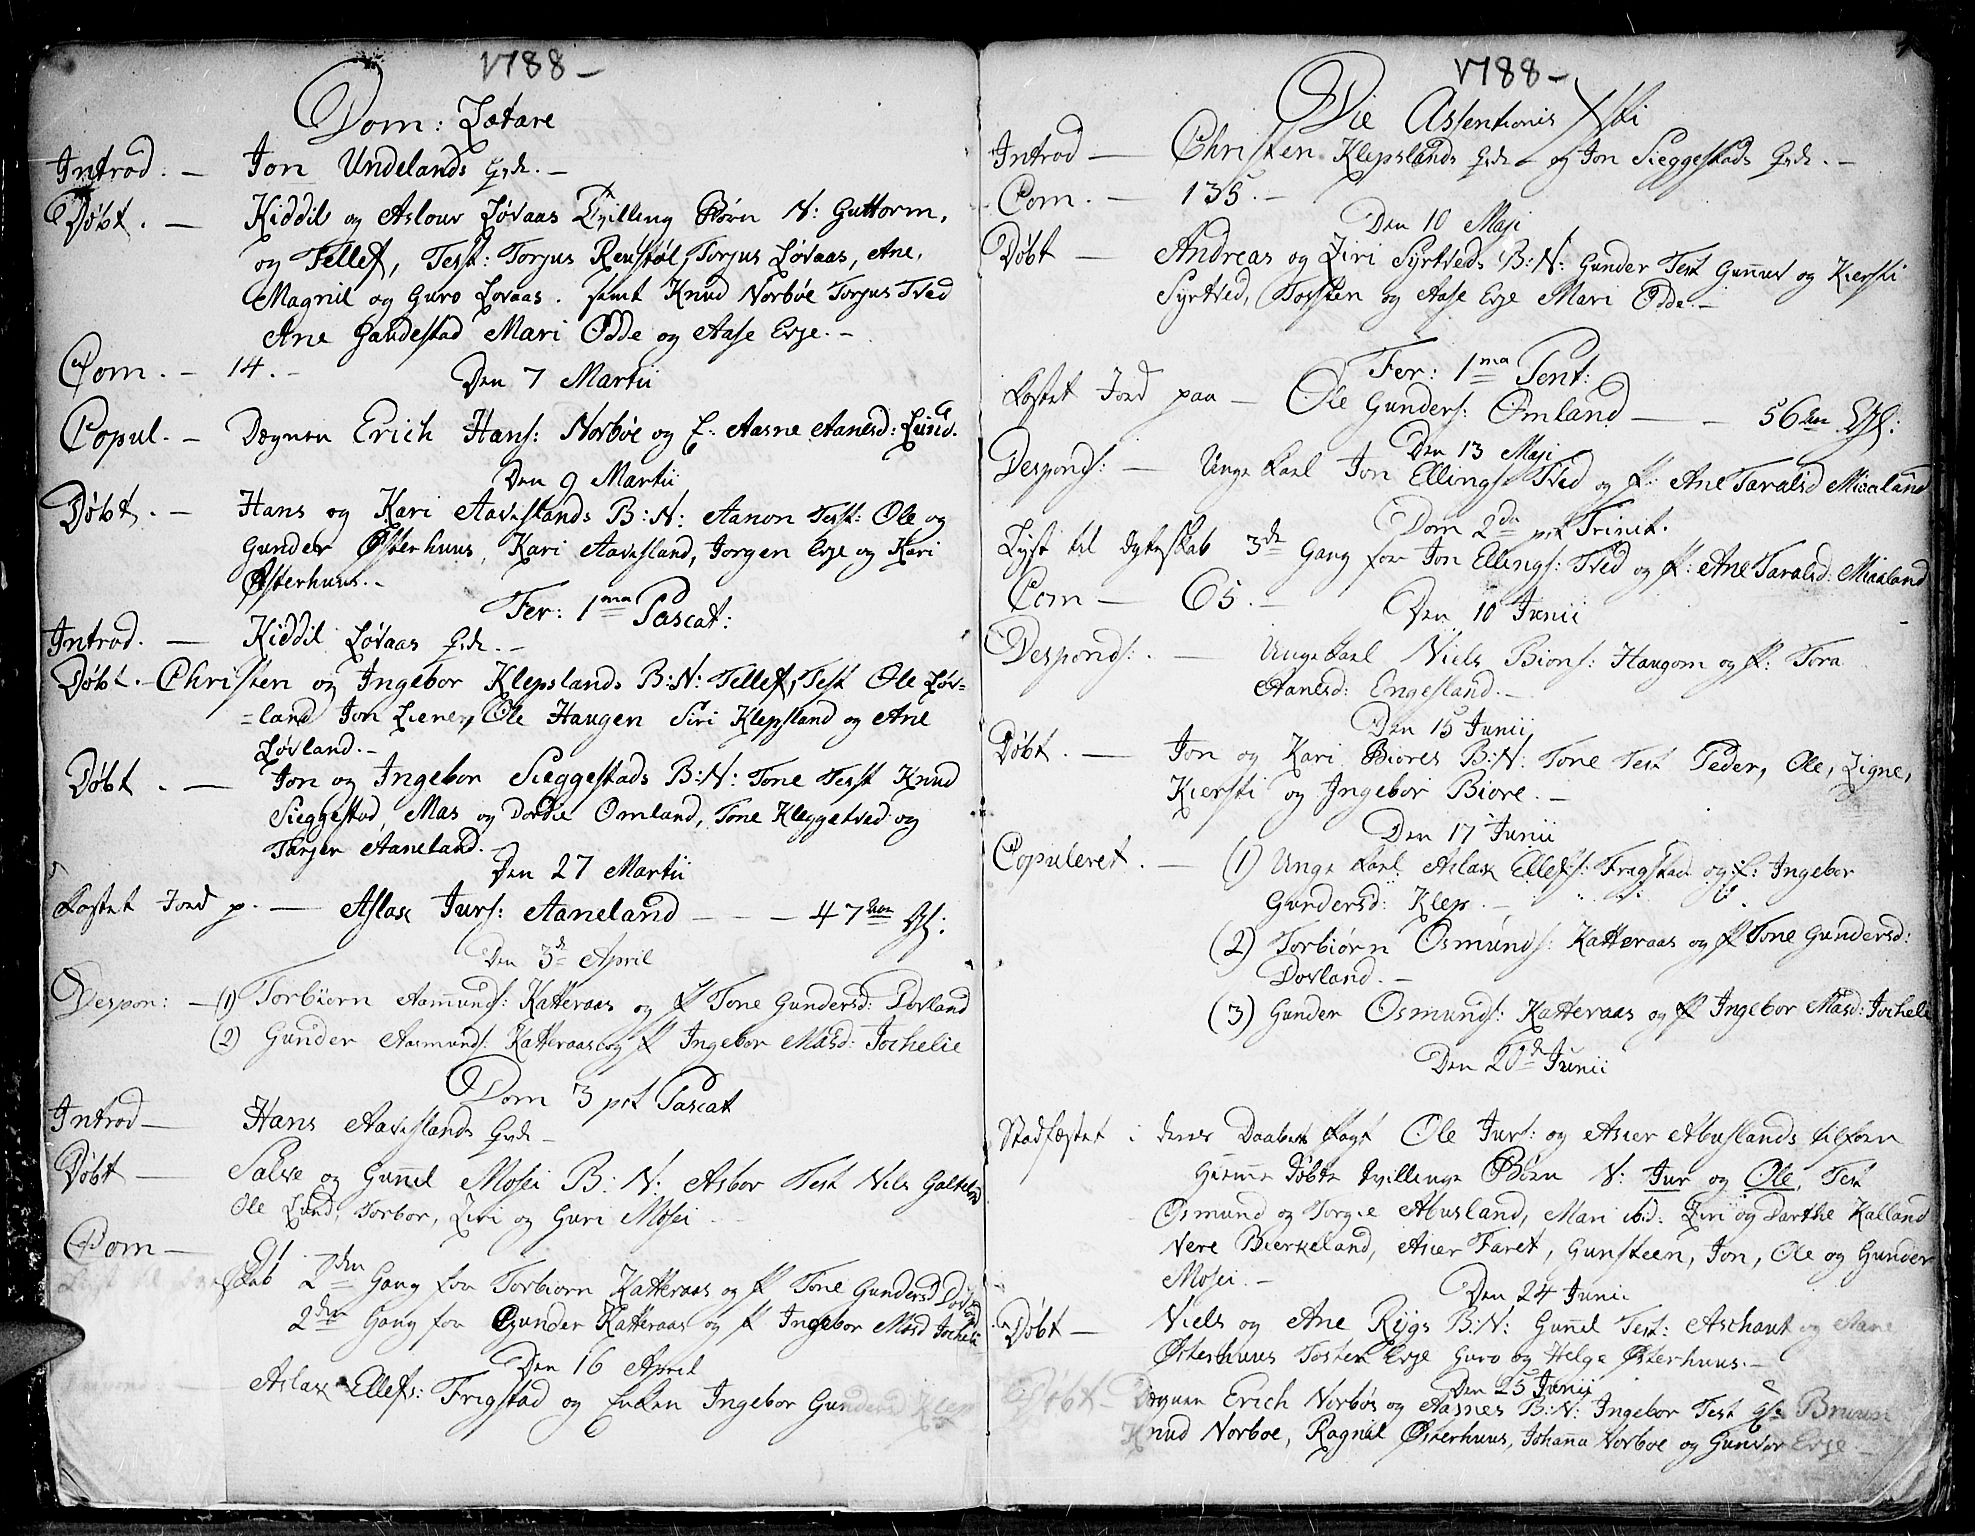 1788 –
Dom: Lætare
Introd: – Jon Undelands Qvde. –
Døbt. – Kiddil og Aslour Løvaas Tvilling Børn N: Guttorm,
og Tellef, Test: Torjus Reustøl, Torjus Løvaas, Ane,
Magnil og Guro Lovaas. samt Knud Norbøe Torjus Tved
Ane Gaudestad Mari Odde og Aase Evje. –
Com. – 14. –
Den 7 Martii
Copul. – Degnen Erich Hans: Norbøe og f. Aasne Aanesd: Lund.
Den 9 Martii
Døbt. – Hans og Kari Aaveslands B:N: Aanon Test: Ole og
Gunder Østerhuus, Kari Aavesland, Jorgen Evje og Kari
Østerhuus. –
Fer: 1ma Pascat:
Introd. – Kiddil Løvaas Qvde. –
Døbt. Christen og Ingebor Klepslands B:N: Tellef, Test Ole Løv=
=land Jon Liener, Ole Haugen Siri Klepsland og Ane
Løvland. –
Døbt. – Jon og Ingebor Sieggestads B:N: Tone Test Knud
Sieggestad, Mas og Dorthe Omland, Tone Kleggetved og
Tarjer Aaneland.
Den 27 Martii
Kastet Jord p. – Aslax Jurs: Aaneland – – – 47
Den 3d April
Despon: – (1) Torbiorn Aamunds: Katteraas og f Tone Gundersd: Dovland
(2) Gunder Aasmunds: Katteraas og f Ingebor Masd: Jochelie
Dom 3 pst Pascat
Introd – Hans Aaveslands Qvde –
Døbt – Salve og Gunnel Mosei B:N: Asbor Test Nils
Ole Lund, Torbor, Ziri og Guri Mosei
Com –
Lyst til skab 2den Gang for Torbiorn Katteraas og f Tone Gundersd Dovland
2den Gang for Gunder Katteraas og f Ingebor Masd Jochelie
Den 16 April
Aslax Ellefs: Frigstad og Enken Ingebor Gundersd Klep
1788 –
Die Assentionis Xsti
Introd – Christen Klepslands Qvde – og Jon Sieggestads Qvde. –
Com. – 135. –
Den 10 Maji
Døbt – Andreas og Ziri Syrtveds B:N: Gunder Test Gunnuv og Kiersti
Syrtved, Torsten og Aase Evje Mari Odde. –
Fer: 1ma Pent:
Kastet Jord paa – Ole Gunders: Omland – – 56
Den 13 Maji
Desponds: – Unge Karl Jon Ellings Tved og f: Ane Taralsd Miaaland
Dom 2da pst Trinit.
Lyst til Egteskab 3de Gang for Jon Ellings: Tved og f: Ane Taralsd: Miaaland
Com – 65. –
Den 10 Junii
Desponds: . – Unge Karl Niels Bions: Haugom og f: Tora
Aanesd: Engesland. –
Den 15 Junii
Døbt. – Jon og Kari Biores B:N: Tone Test Peder, Ole, Zigne,
Kiersti og Ingebor Biore. –
Den 17 Junii
Copuleret. – (1) Unge Karl Aslax Ellefs: Frigstad og f: Ingebor
Gundersd: Klep. –
(2) Torbiørn Osmunds: Katteraas og f Tone Gundersd:
Dovland. –
(3) Gunder Osmunds: Katteraas og f Ingebor Masd: Jochelie
Den 20d Junii
Stadfæstet i deres Daabens Pagt Ole Jurs: og Asier Abuslands tilforn
hiemme Døbte tvillinge Børn N: Jur og Ole, Test
Osmund og Torgie Abusland, Mari ibid: Ziri og Darthe Kalland
Nere Bierkeland, Asier Faret, Gunsteen, Jon, Ole og Gunder
Mosei. –
Den 24 Junii
Døbt – Niels og Ane Rygs B:N: Gunnel Test: Aschaut og Aane
Østerhuus Tosten Evje Guro og Helge Østerhuus. –
Den 25 Junii
Døbt – Degnen Erich Norbøs og Aasnes B:N: Ingebor Test Bruun
Knud Norboe, Ragnil Østerhuus, Johanna Norboe og Gunvor Evje –